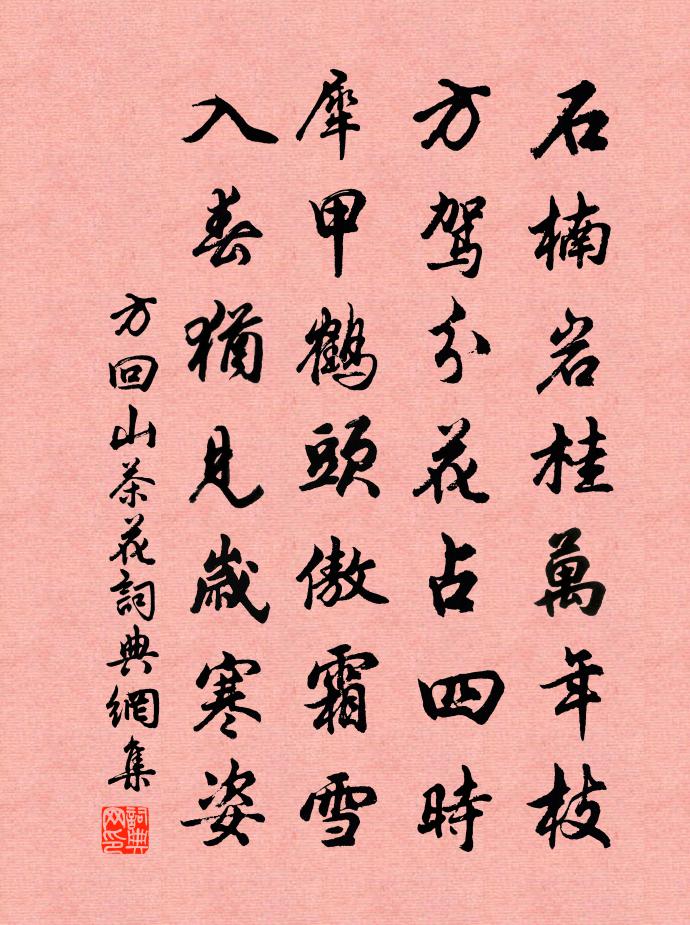 石楠岩桂萬年枝
方駕分花占四時
犀甲鶴頭傲霜雪
入春猶見歲寒姿
方回山茶花詞典網集
詞典網印